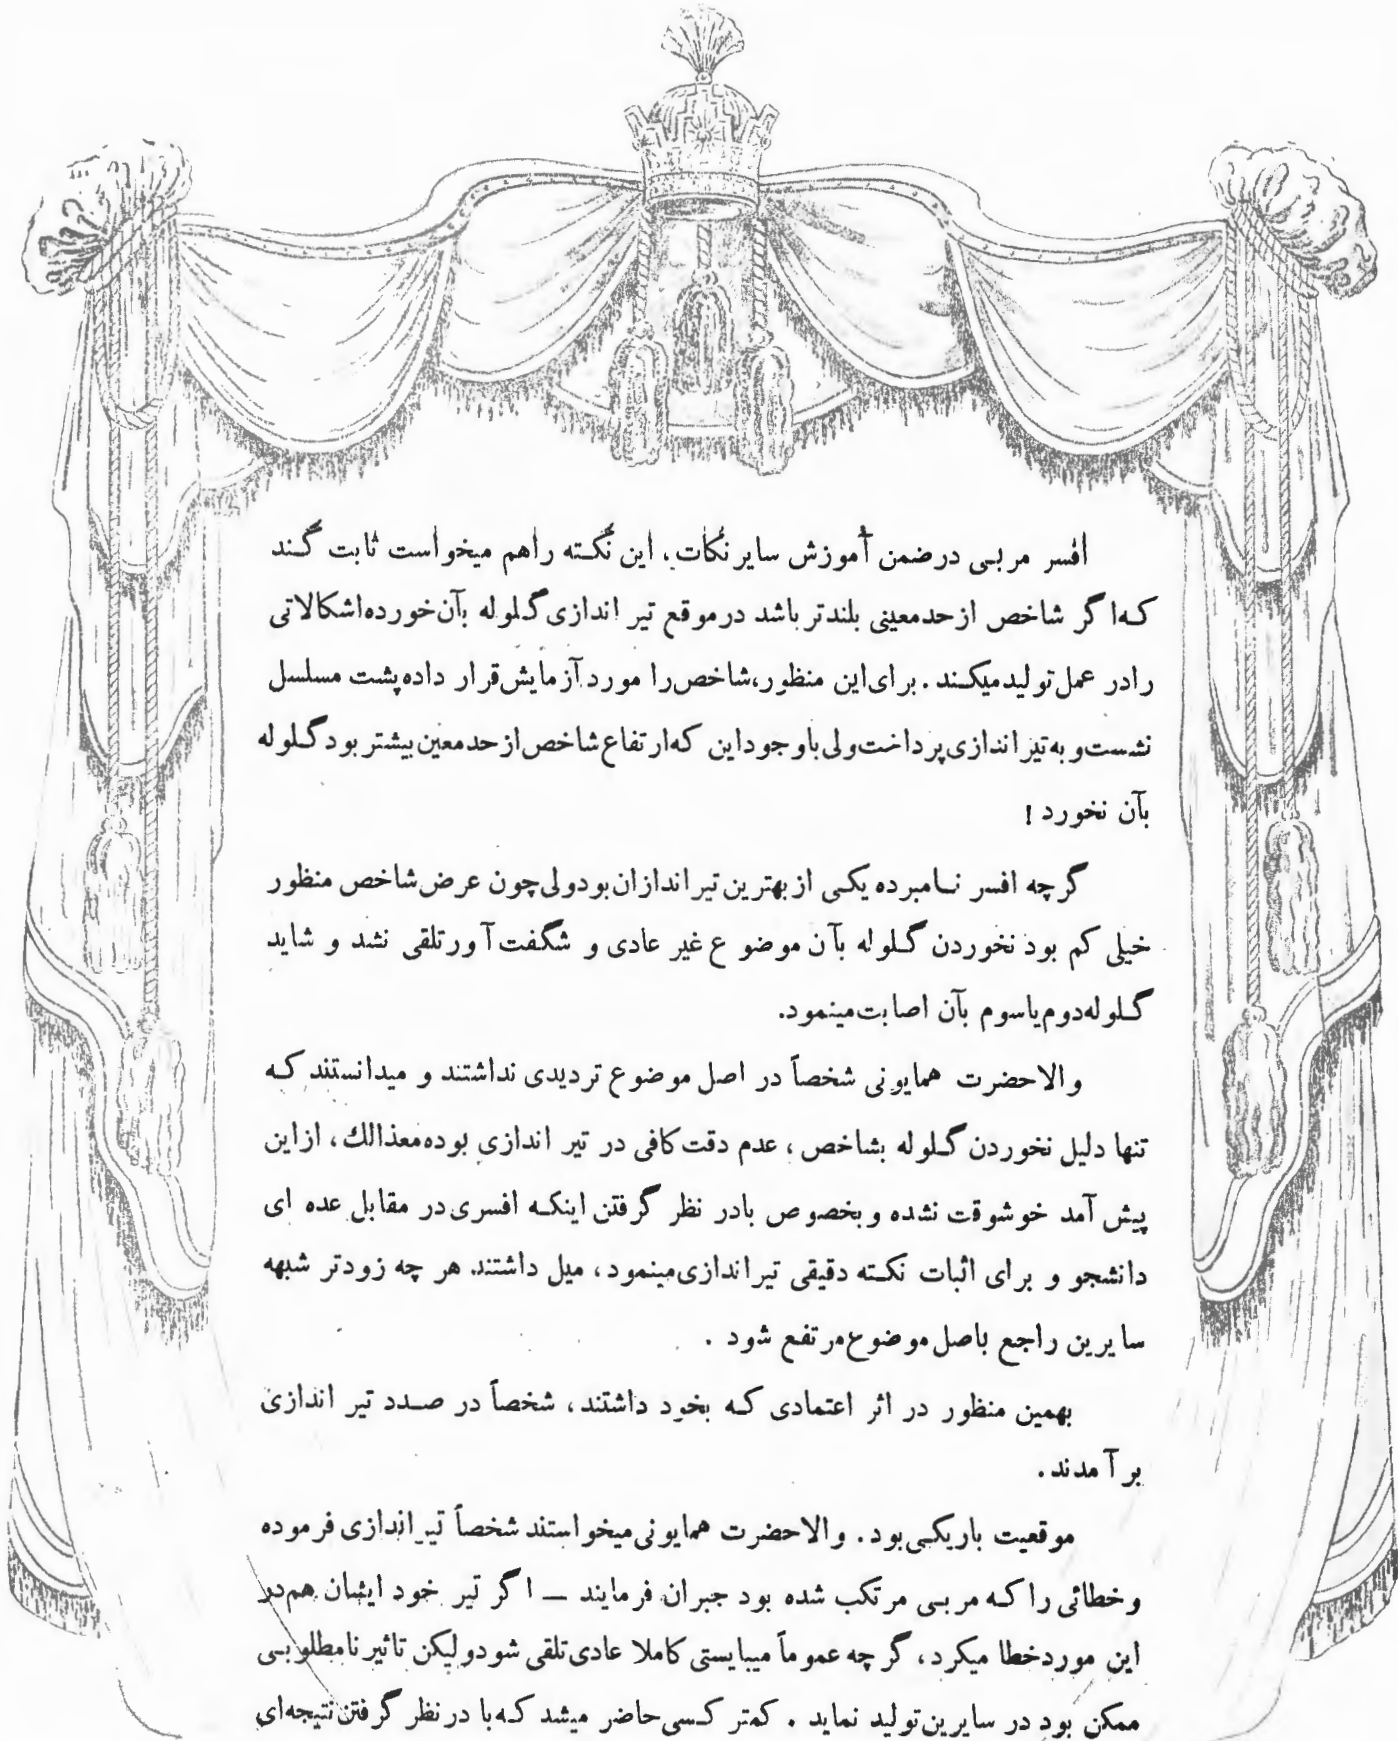 افسر مربی درضمن آموزش سایر نکات، این نکته راهم میخواست ثابت کند
که اگر شاخص از حد معینی بلندتر باشد در موقع تیر اندازی گلوله بآن خورده اشکالاتی
رادر عمل تولید میکند . برای این منظور، شاخص را مورد آزمایش قرار داده پشت مسلسل
نشست و به تیر اندازی پرداخت ولی باوجود این که ارتفاع شاخص از حد معین بیشتر بود گلوله
بآن نخورد !
گرچه افسر نامبرده یکی از بهترین تیر اندازان بود ولی چون عرض شاخص منظور
خیلی کم بود نخوردن گلوله بآن موضوع غیر عادی و شگفت آور تلقی نشد و شاید
گلوله دوم یا سوم بآن اصابت مینمود.
والاحضرت همایونی شخصاً در اصل موضوع تردیدی نداشتند و میدانستند که
تنها دلیل نخوردن گلوله بشاخص ، عدم دقت کافی در تیر اندازی بوده معذالك ، ازاین
پیش آمد خوشوقت نشده و بخصوص بادر نظر گرفتن اینکه افسری در مقابل عده ای
دانشجو و برای اثبات نکته دقیقی تیر اندازی مینمود ، میل داشتند هر چه زودتر شبهه
سایرین راجع باصل موضوع مرتفع شود .
بهمین منظور در اثر اعتمادی که بخود داشتند ، شخصاً در صدد تیر اندازی
بر آمدند .
موقعیت باریکی بود . والاحضرت همایونی میخواستند شخصاً تیر اندازی فرموده
و خطائی را که مربی مرتکب شده بود جبران فرمایند — اگر تیر خود ایشان هم در
این مورد خطا میکرد ، گرچه عموماً میبایستی کاملا عادی تلقی شود ولیکن تاثیر نامطلوبی
ممکن بود در سایرین تولید نماید . کمتر کسی حاضر میشد که با در نظر گرفتن نتیجه ای